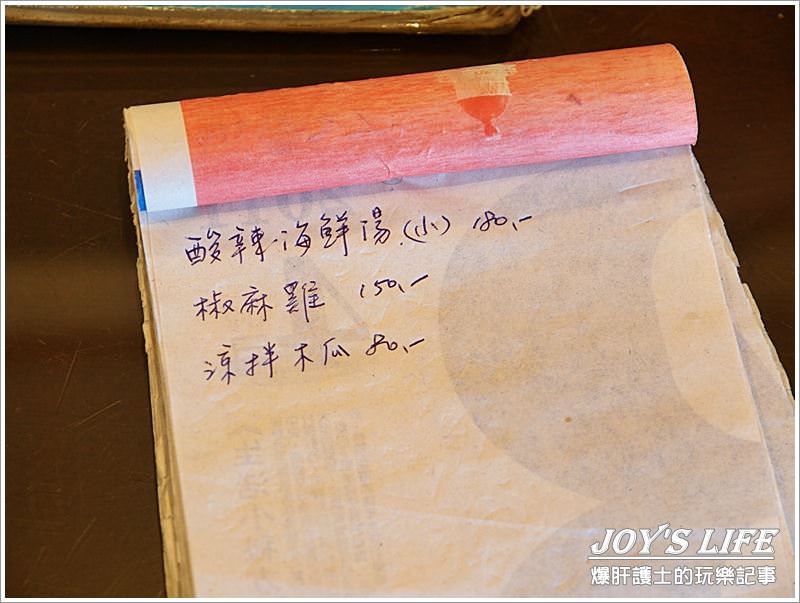 酸辣海鮮湯(小) 180.-
椒麻雞 150.-
涼拌木瓜 80.-
JOY'S LIFE
爆肝護士的玩樂記事